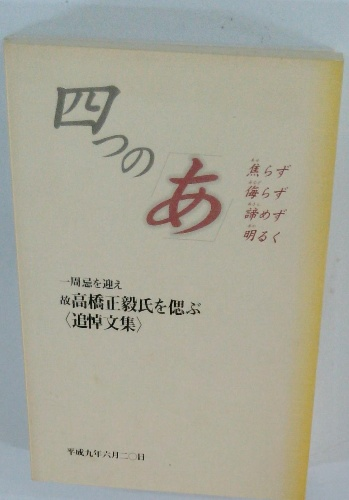 四つの
あ
焦らず
侮らず
諦めず
明るく
一周忌を迎え
故高橋正毅氏を偲ぶ
〈追悼文集〉
平成九年六月二〇日